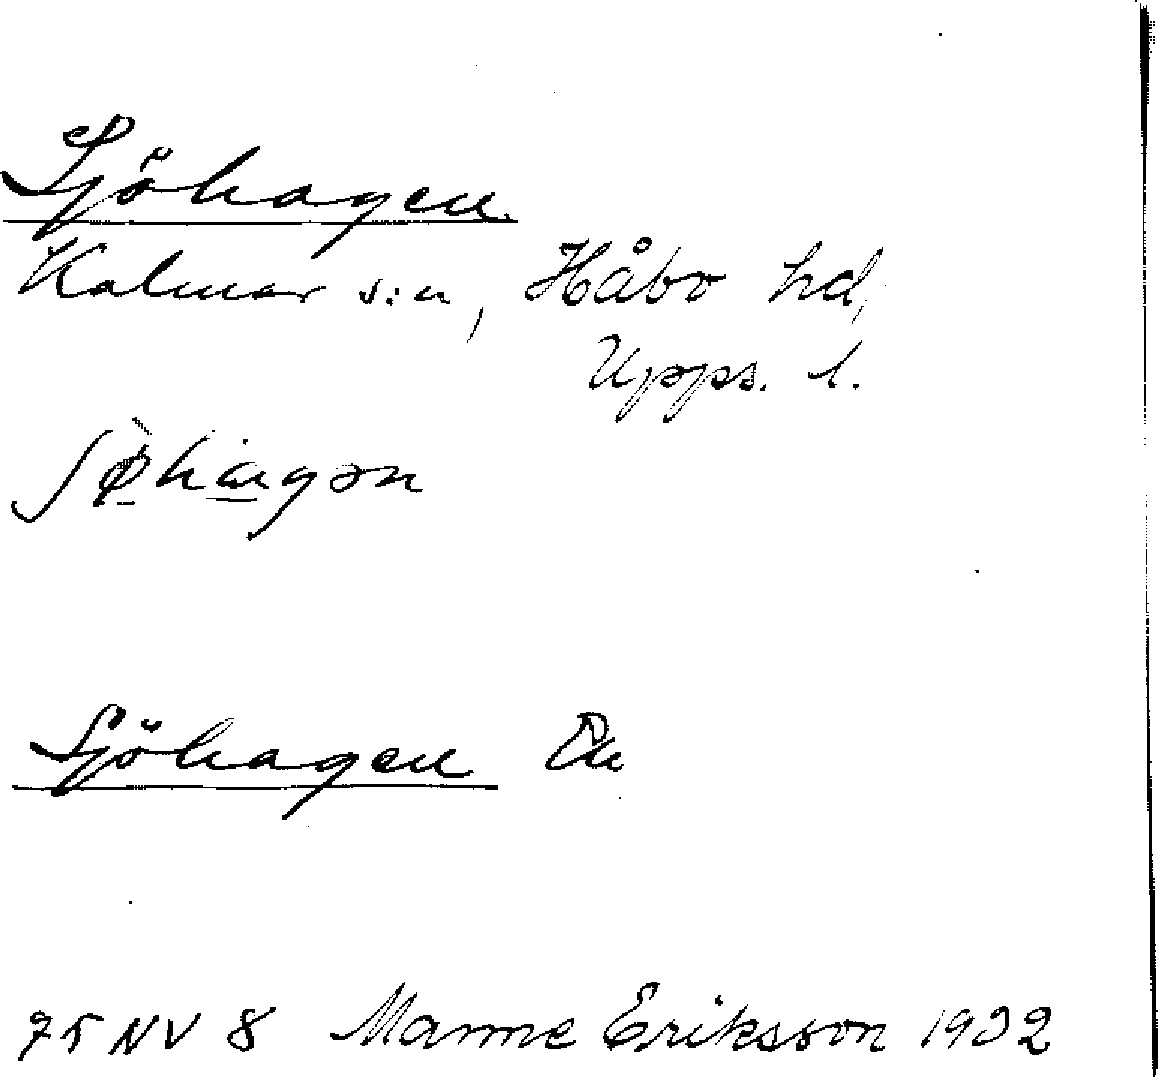 Sjöhagen
Kalmar s:n, Håbo hd,
Upps. l.
Sjöhagen
75 NV 8 Manne Eriksson 1932